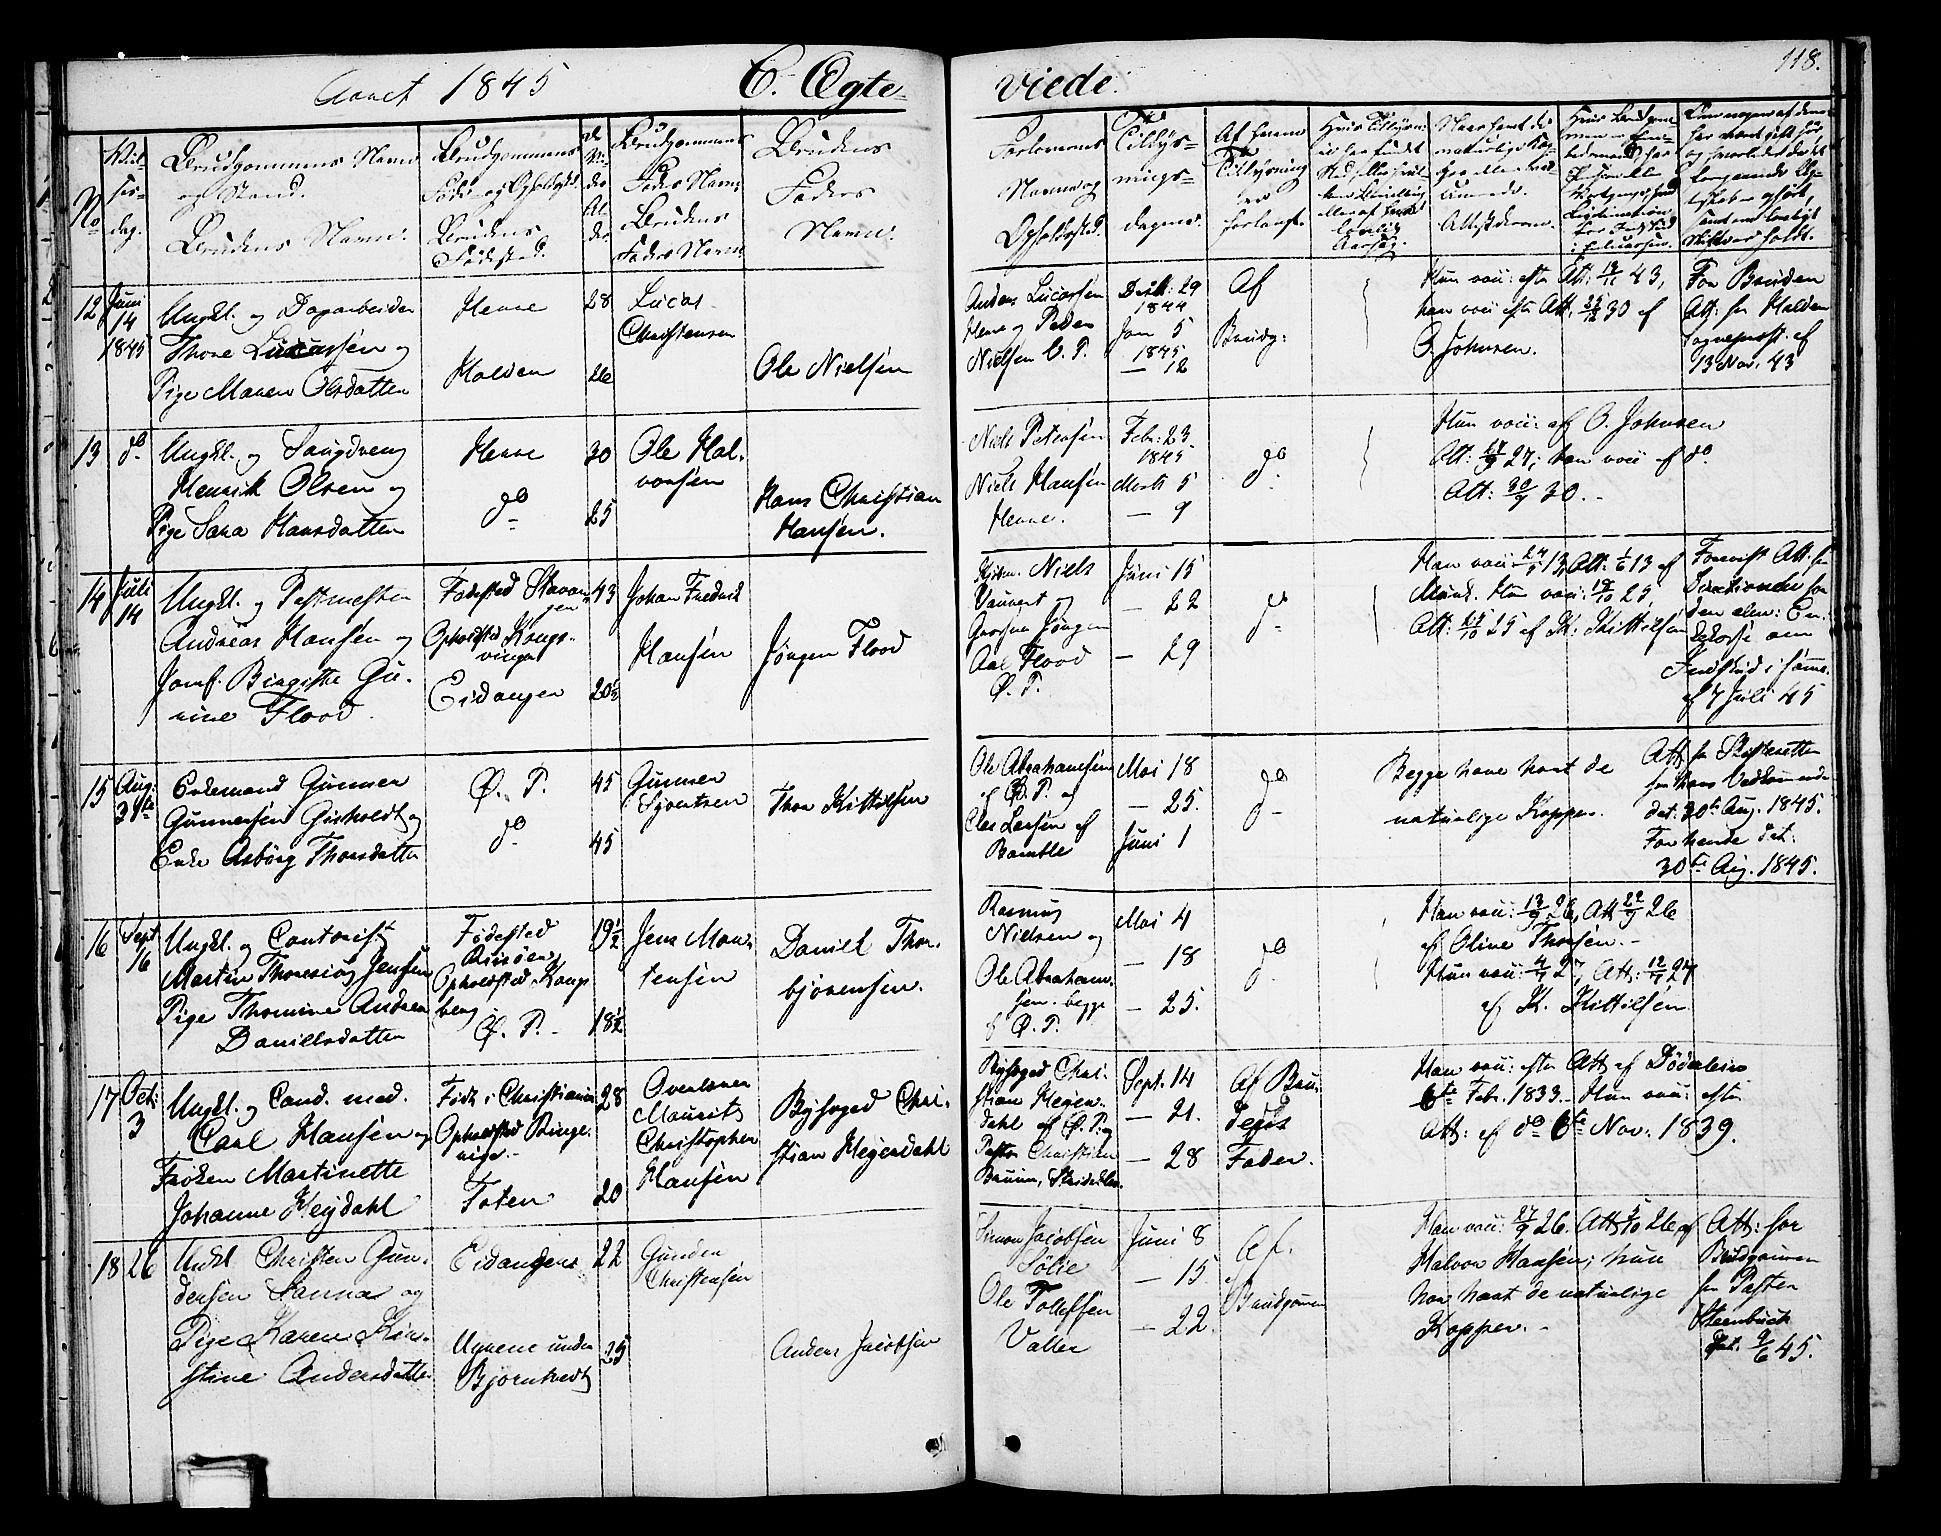 Aaret 1845 C. Ægte-
viede.
118.
No
Vielses-
dag.
Brudgommens Navn
og Stand.
Brudens Navn.
Brudgommens
Føde- og Opholdssted.
Brudens
Fødested.
Brudgommens
Faders Navn.
Brudens
Faders Navn.
Forlovernes
Navne og
Opholdssted.
Tillys-
nings-
dagene.
Af hvem
Tillysning
er
forlangt.
12 Juni
14
1845
Ungkl. og Dagarbeider
Thore Lucassen og
Pige Maren Olsdatter
Herre
Halden
28
26
Lucas
Christensen
Ole Nielsen
Anders Lucassen
Herre og Peder
Nielsen Ø. P.
Decbr: 29
1844
Jan 5
1845
— 12
Af
Brudg:
Hun vac: efter Att: 43,
han vac: efter Att. 30 af
O. Johnsen.
For Bruden
Att: fra Halden
Sognepræst. af
13 Nov. 43
13 do
Ungkl. og Saugdreng
Henrik Olsen og
Pige Sara Hansdatter
Herre
do
30
25
Ole Hal-
vorsen
Hans Christian
Hansen.
Niels Petersen
Niels Hansen
Herre.
Febr: 23
1845
Marts 5
— 9
do
Hun vac: af O. Johnsen
Att: 27; han vac af do
Att: 30/9 30.-
14 Juli
14
Ungkl. og Postmester
Andreas Hansen og
Jomf. Birgitte Gu-
rine Flood
Fødested Stavan-
ger
Opholdsted Kongs-
vinger
Eidanger
43
20½
Johan Fredrik
Hansen
Jørgen Flood
Niels
Vauvert og
Jørgen
Aal Flood
Ø. P.
Juni 15
— 22
— 29
do
Han vac: 24/5 13, Att: 1/6 13 af
Munk. Hun vac: 25
Att: 25 af K: Kittilsen
Forevist Att. fra
Direktionen for
den alm: En-
kekasse om
Indskud i samme
af 7 Juli 45
15 Aug:
31te
Enkemand Gunner
Gunnersen Gisholdt og
Enke Asbørg Thorsdatter
Ø. P.
do
45
45
Gunner
Sjvertsen
Thor Kittilsen
Ole Abrahamsen
af Ø. P. og
Claes Larsen af
Bamble
Mai 18
— 25.
Juni 1
do
Begge have havt de
naturlige Kopper.
Att fra Skifteretten
for hans Vedkommende
dat: 30te Aug. 1845.
For hende dat:
30te Aug. 1845.
16 Sept
16
Ungkl. og Contorist
Martin Thoresius Jensen
Pige Thomine Andrea
Danielsdatter
Fødested
Riisøer,
Opholdsted Kongs
berg
Ø. P. -
19½
18½
Jens Mor-
tensen
Daniel Thor-
bjørensen.
Rasmus
Nielsen og
Ole Abraham-
sen. begge
af Ø. P.
Mai 4
— 18
— 25.
do
Han vac: 13/9 26, Att 22/9 26
af Oline Thorsen. -
Hun vac: 4/7 27, Att: 12/7 27
af K. Kittilsen
17 Oct:
3
Ungkl. og Cand. med.
Carl Hansen og
Frøken Martinette
Johanne Heijdahl
Født i Christiania
Opholdsted Ringe-
rige.-
Toten
28
20
Overlærer
Maurits
Christopher
Hansen
Byfoged Chri-
stian Heijerdahl
Byfoged Chri-
stian Heijer-
dahl af Ø. P. og
Pastor Christian
Bruun,
Sept. 14
— 21.
— 28
Af Bru-
dens
Fader.
Han vac: efter Att af Døderlein
6te Febr. 1833. Hun vac: efter
Att: af do 6te Nov. 1839.
18 26
Unkl Christen Gun-
dersen Sanna og
Pige Karen Kir-
stine Andersdatter
Eidanger
Ugrene under
Bjørntvedt
22
25
Gunder
Christensen
Anders Jacobsen
Simon Jacobsen
Sølie
Ole Tollefsen
Valler
Juni 8
— 15.
— 22.
Af
Brudgomen
Han vac: 27/9 26. Att: 5/10 26 af
Halvor Hansen; hun
har havt de naturlige
Kopper. -
Att: for
Brudgommen
fra Pastor
Steenbuch
dat. 9/6 45.